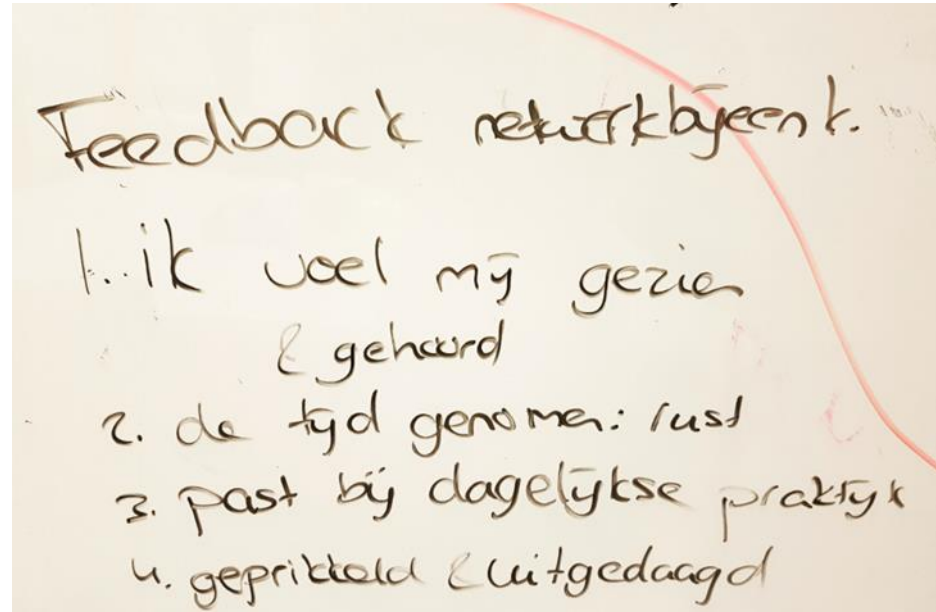 Feedback netwerkbijeenk.
1. ik voel mij gezien
& gehoord
2. de tijd genomen: rust
3. past bij dagelijkse praktijk
4. geprikkeld & uitgedaagd